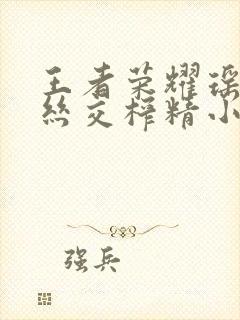 王者荣耀瑶
丝交榨精小
强兵